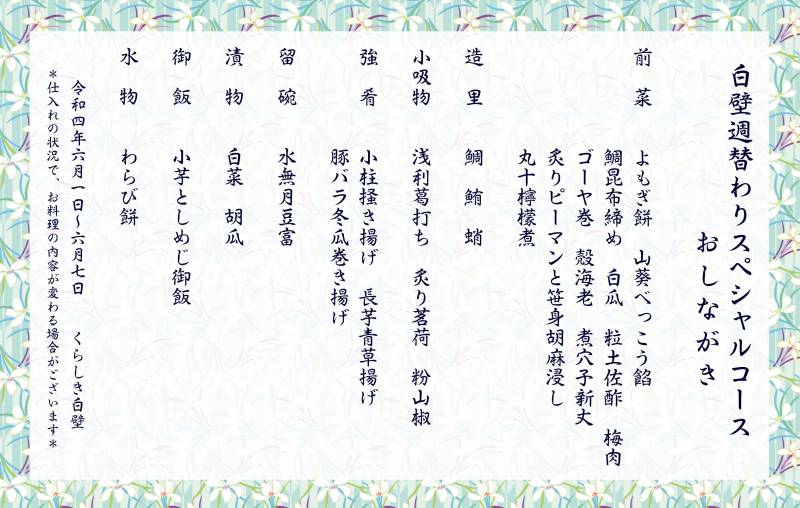 白壁週替わりスペシャルコース
おしながき
前菜 よもぎ餅 山葵べっこう餡
鯛昆布締め 白瓜 粒土佐酢 梅肉
ゴーヤ巻 殻海老 煮穴子新丈
炙りピーマンと笹身胡麻浸し
丸十檸檬煮
造里 鯛 鮪 蛸
小吸物 浅利葛打ち 炙り茗荷 粉山椒
強肴 小柱掻き揚げ 長芋青草揚げ
豚バラ冬瓜巻き揚げ
留碗 水無月豆富
漬物 白菜 胡瓜
御飯 小芋としめじ御飯
水物 わらび餅
令和四年六月一日～六月七日 くらしき白壁
＊仕入れの状況で、お料理の内容が変わる場合がございます＊